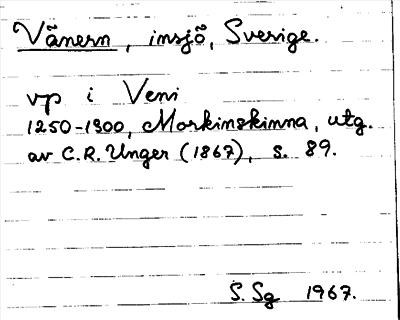 Vänern, insjö, Sverige.
vp i Veni
1250-1300, Morkinskinna, utg.
av C.R. Unger (1867), s. 89.
S. Sg 1967.